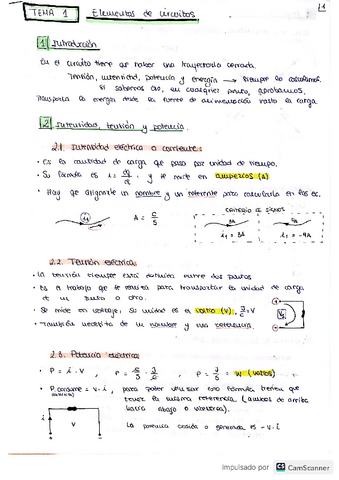 1.1
TEMA 1 Elementos de circuitos
1 Introducción
En el circuito tiene que haber una trayectoria cerrada.
Tensión, intensidad, potencia y energía → siempre lo calculamos.
Si sabemos eso, en cualquier punto, aprobamos.
Transporta la energía desde la fuente de alimentación hasta la carga.
1.2 Intensidad, tensión y potencia
2.1 Intensidad eléctrica o corriente:
· Es la cantidad de carga que pasa por unidad de tiempo.
· Su fórmula es i = dq/dt y se mide en amperios (A)
· Hay que asignarle un nombre y un referente para calcularla en los ej.
i1
A = C/S
CRITERIO DE SIGNOS
3A
i1 = 3A
i1 = -4A
2.2. Tensión eléctrica
· La tensión siempre está definida entre dos puntos
· Es el trabajo que se realiza para transportar la unidad de carga
de un punto a otro.
· Se mide en voltaje, su unidad es el voltio (V). J/C = V
· También necesita de un nombre y una referencia.
2.3. Potencia eléctrica
· P = i · V , P = C/S · J/C , P = J/S = W (vatios)
· P consume = V · i , para poder utilizar esta fórmula tienen que
tener la misma referencia (ambos de arriba
hacia abajo o viceversa).
i
V
La potencia cedida o generada es -V · i
Impulsado por CS CamScanner